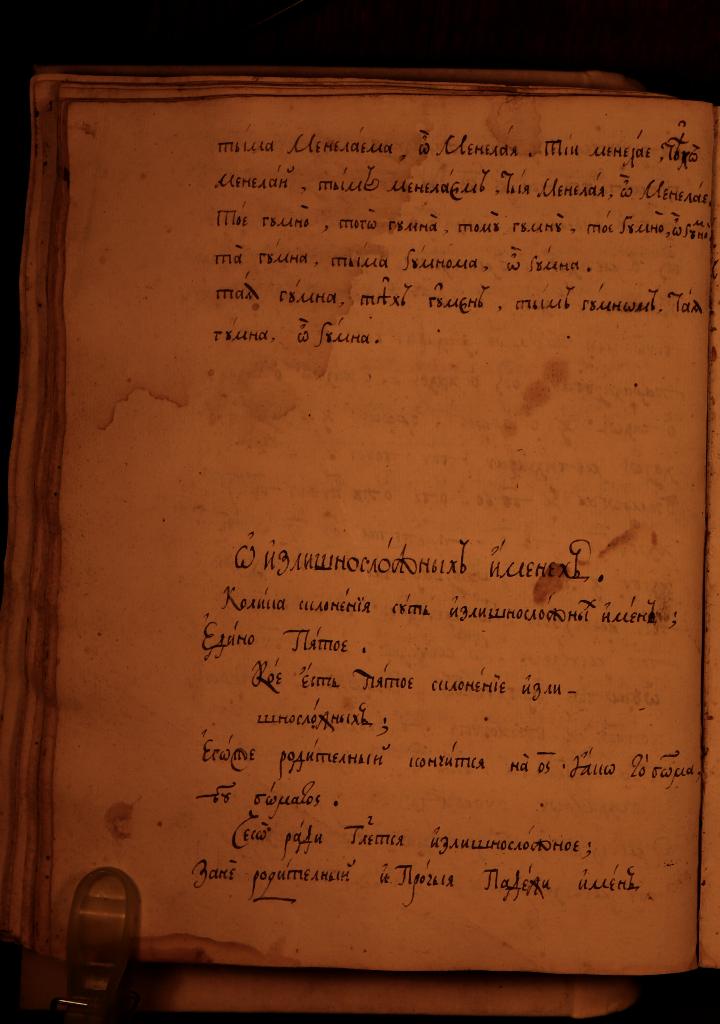 тыма Менелаема, ѽ Менелаѧ. Тїи менелае, тѣхъ
менелай, тымъ менелаемъ, тыя Менелаѧ, ѽ Менелае
Тое гумно, тогѡ гумна, тому гумну, тое гумно, ѽ гумно
та гумна, тыма гумнома, ѽ гумна.
таѧ гумна, тѣхъ гуменъ, тымъ гумнѡмъ, таѧ
гумна, ѽ гумна.
Ѡ излишносложныхъ именехъ.
Колика склоненїя суть излишносложны именъ;
Едино Пятое.
Кое есть пятое склоненїе изли-
шносложныхъ;
Егѡже родителный кончится на ος. Якѡ τὸ σῶμα,
τοῦ σώματος.
Чесѡ ради Глется излишносложное;
Зане родителный и Прочыя Падежи именъ